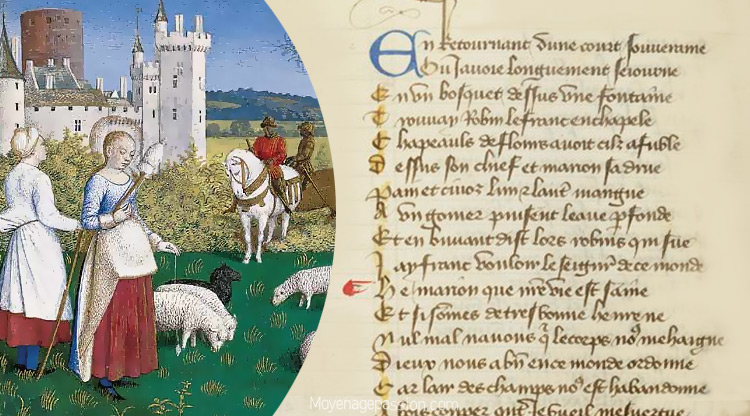 En Retournant dune court souveraine
Ou Javoie longuement seiourne
En vn bosquet dessus vne fontaine
Trouuay Robin lefranc enchapele
Chapeauls de flours auoit cilz afuble
Dessus son chief et marion sa drue
Pain et ciuoz lun et laut mangue
A vn gomer puisent leaue pfonde
Et en buuant dist lors robins qui sue
Jay franc vouloir le seignr de ce monde
He marion que nre vie est saine
Et si somes de tresbonne heure ne
Nul mal nauons q̄ le corps no⁹ mehaigne
Dieux nous a bn̄ en ce monde ordonne
Car lair des champs no⁹ est habandonne
Moyenagepassion.com